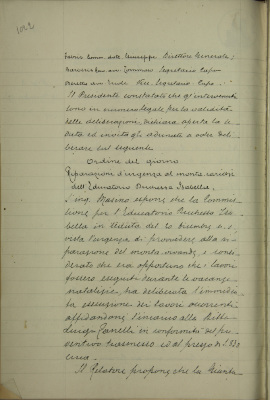 1022
Comm. dott. Giuseppe Direttore Generale;
Segretario Capo
Vice Segretario Capo.
Il Presidente constatato che gl'intervenuti
sono in numero legale per la validità
delle deliberazioni, dichiara aperta la se
duta ed invita gli adunati a voler deli
berare sul seguente
Ordine del giorno
Riparazioni d'urgenza al monta vivande
dell'Educatorio Duchessa Isabella.
L'ing. Marino espone che la Commis
sione per l'Educatorio Duchessa Isa
bella in seduta del 20 Dicembre u. s.
vista l'urgenza di provvedere alla ri
parazione del monta vivande, e consi
derato che era opportuno che i lavori
fossero eseguiti durante le vacanze
natalizie, ha deliberato l'immedia
ta esecuzione dei lavori occorrenti
affidandone l'incarico alla Ditta
Luigi in conformità del pre
ventivo trasmesso ed al prezzo di L.
circa.
Il Relatore propone che la Giunta